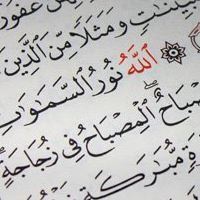 غَفُورٌ
مُّبَيِّنَٰتٍ وَمَثَلًا مِّنَ ٱلَّذِينَ
۞ ٱللَّهُ نُورُ ٱلسَّمَٰوَٰتِ
مِصْبَاحٌ ۖ ٱلْمِصْبَاحُ فِى زُجَاجَةٍ
مُّبَٰرَكَةٍ